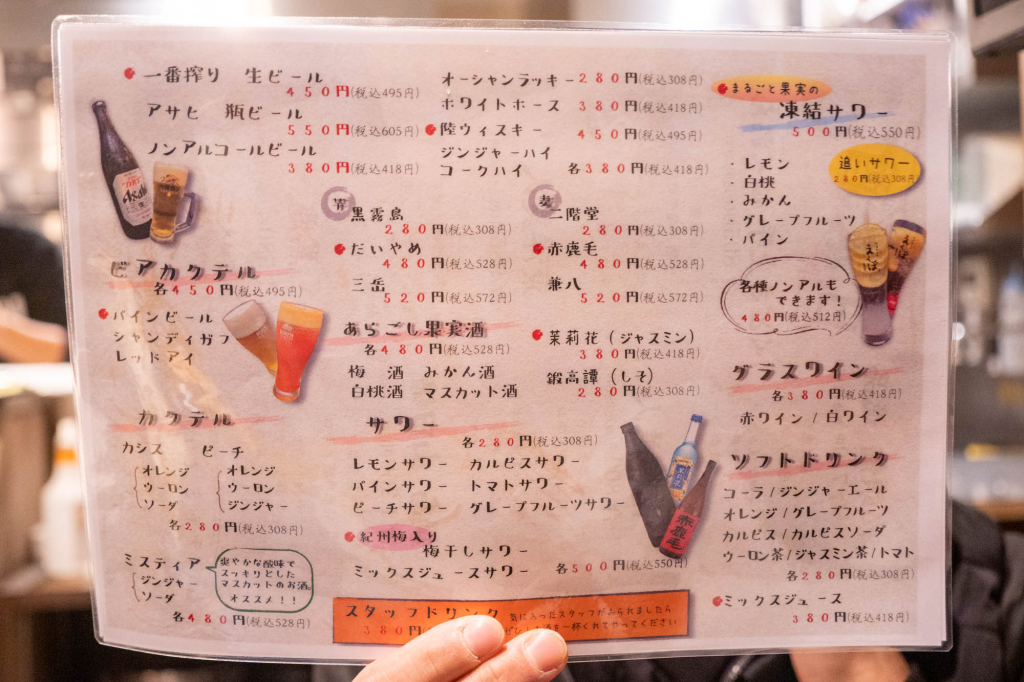 一番搾り 生ビール
450円(税込495円)
アサヒ 瓶ビール
550円(税込605円)
ノンアルコールビール
380円(税込418円)
Asahi
ビアカクテル
各450円(税込495円)
パインビール
シャンディガフ
レッドアイ
カクテル
カシス ピーチ
オレンジ オレンジ
ウーロン ウーロン
ソーダ ジンジャー
各280円(税込308円)
ミスティア
ジンジャー
ソーダ
各480円(税込528円)
爽やかな酸味で
スッキリとした
マスカットのお酒。
オススメ！！
オーシャンラッキー 280円(税込308円)
ホワイトホース 380円(税込418円)
陸ウィスキー 450円(税込495円)
ジンジャーハイ
コークハイ 各380円(税込418円)
芋
黒霧島
280円(税込308円)
だいやめ
480円(税込528円)
三岳
520円(税込572円)
麦
二階堂
280円(税込308円)
赤鹿毛
480円(税込528円)
兼八
520円(税込572円)
あらごし果実酒
各480円(税込528円)
梅酒 みかん酒
白桃酒 マスカット酒
茉莉花(ジャスミン)
380円(税込418円)
鍛高譚(しそ)
280円(税込308円)
サワー
各280円(税込308円)
レモンサワー カルピスサワー
パインサワー トマトサワー
ピーチサワー グレープフルーツサワー
紀州梅入り
梅干しサワー
ミックスジュースサワー 各500円(税込550円)
赤鹿毛
スタッフドリンク
380円
気に入ったスタッフがおられましたら
を一杯くれてやってください
まるごと果実の
凍結サワー
500円(税込550円)
・レモン
・白桃
・みかん
・グレープフルーツ
・パイン
追いサワー
280円(税込308円
各種ノンアルも
できます！
480円(税込512円)
グラスワイン
各380円(税込418円)
赤ワイン/白ワイン
ソフトドリンク
コーラ/ジンジャーエール
オレンジ/グレープフルーツ
カルピス/カルピスソーダ
ウーロン茶/ジャスミン茶/トマト
各280円(税込308円)
ミックスジュース
380円(税込418円)